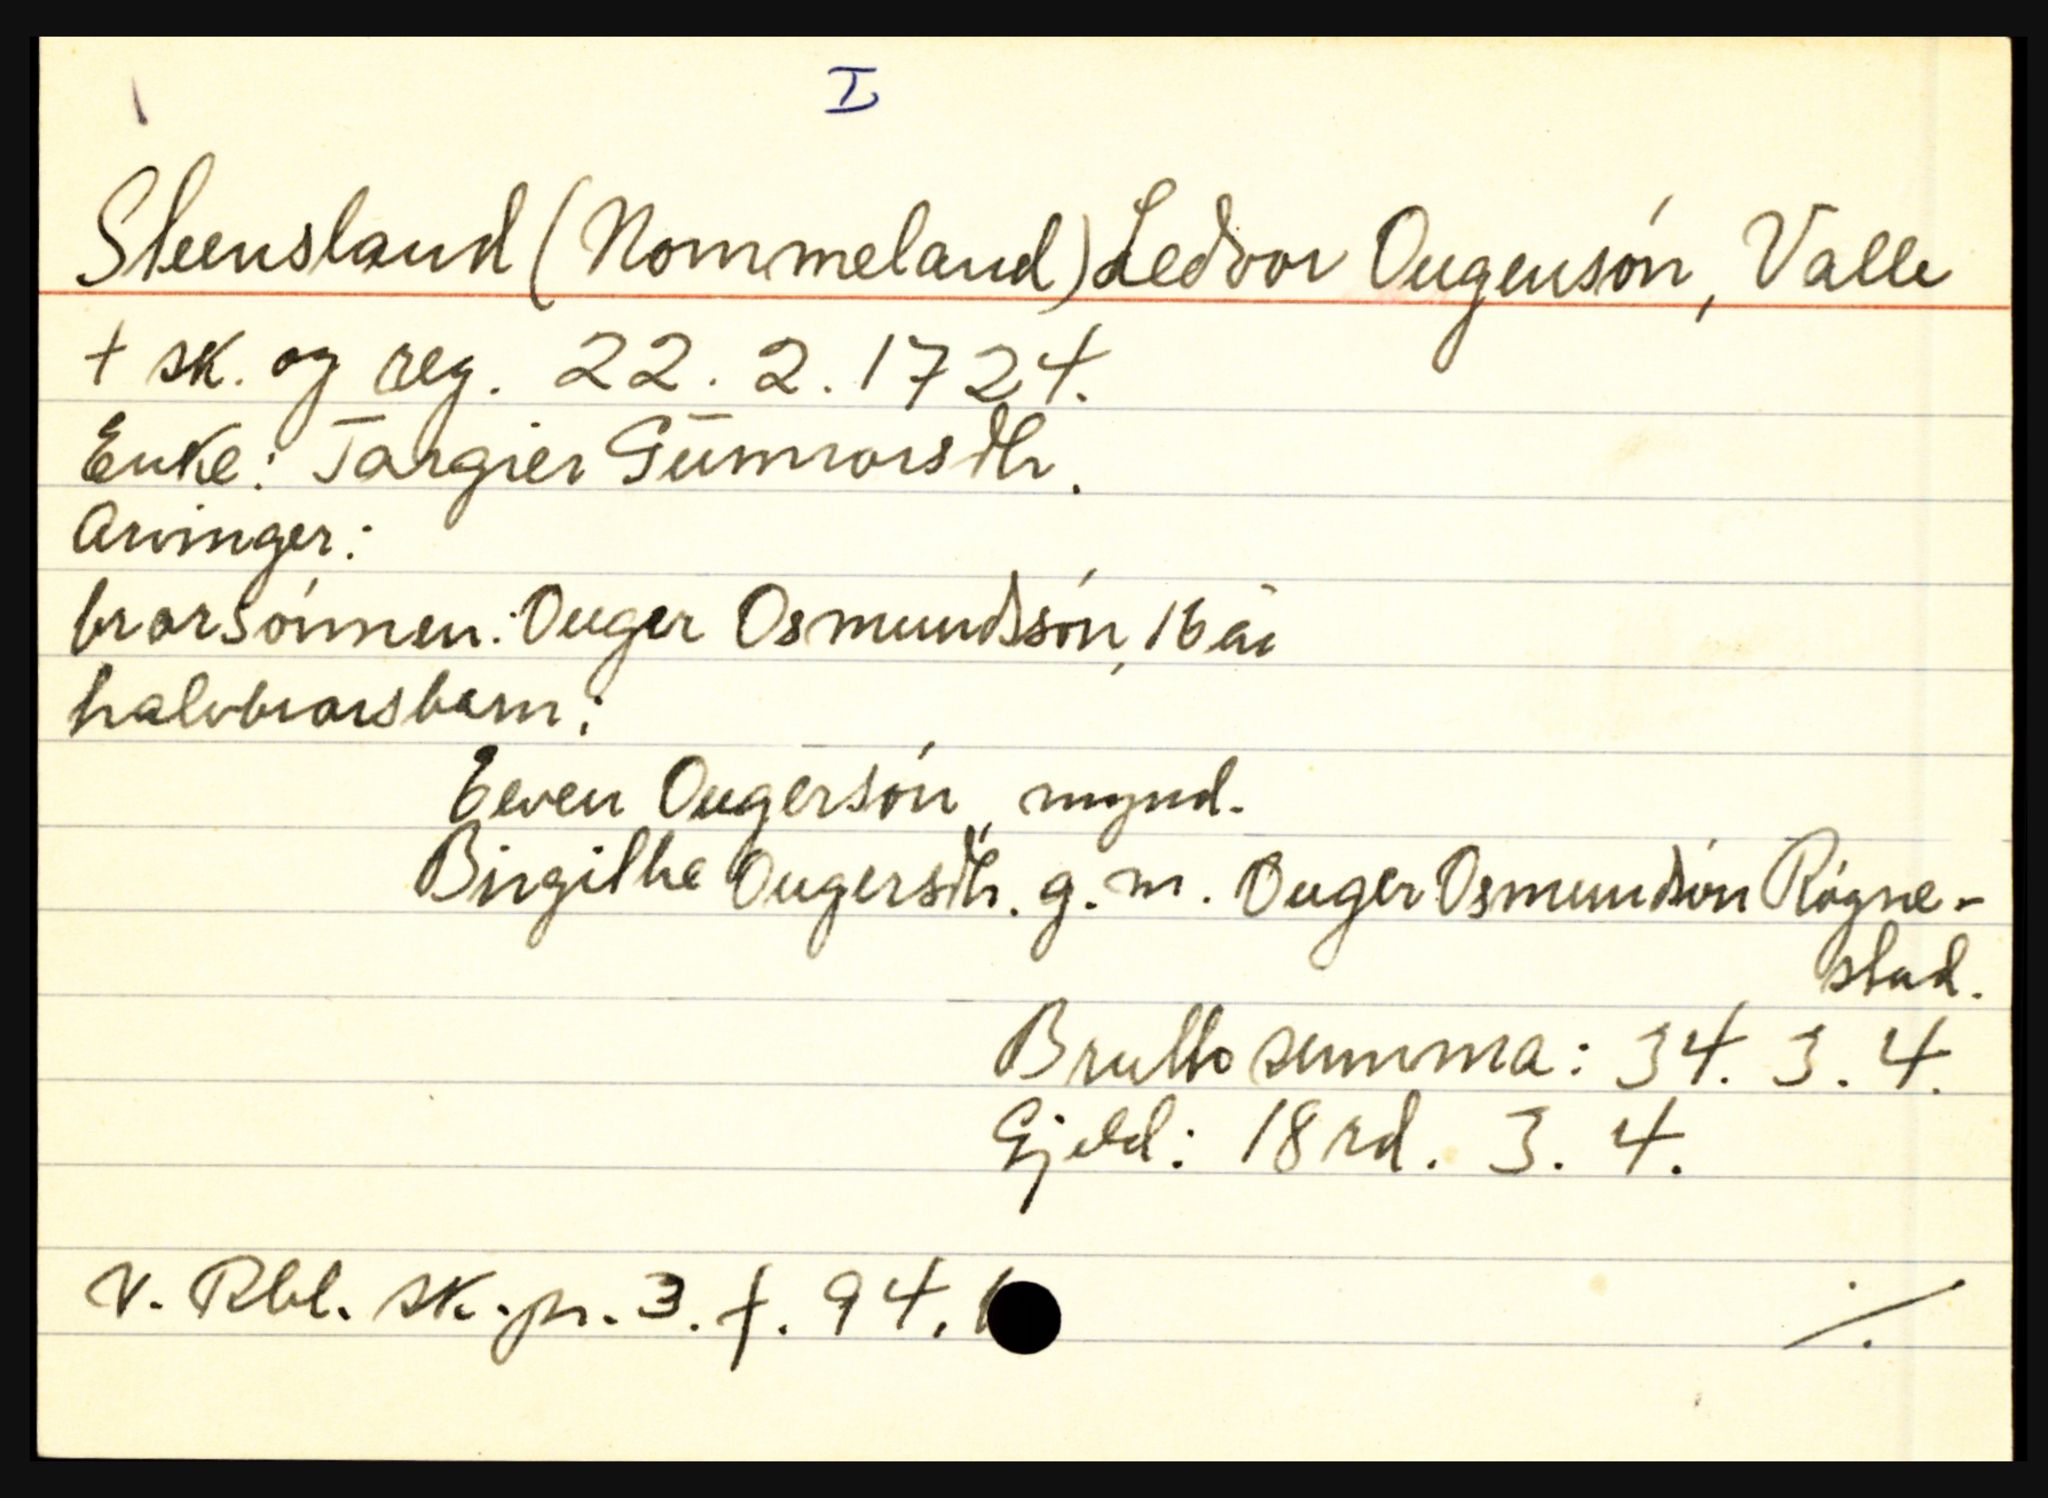 I
Steensland (Nommeland) Ledvor Ougensón, Valle
+ sk. og reg. 22. 2. 1724.
Enke: Targier Gunnvorsdtr.
Arvinger:
brorsónnen: Ouger Osmundsón, 16 år
halvbrorsbarn:
Eeven Ougersón, mynd.
Birgithe Ougersdtr. g. m. Ouger Osmundsón Rógne-
stad.
Brutto summa: 34. 3. 4.
Gjeld: 18 rd. 3. 4.
V. Rbl. sk. pr. 3. f. 94,
./.